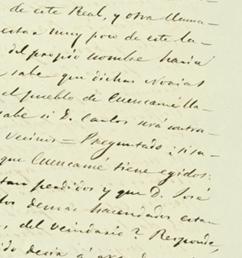 de este Real, y otra llama-
estan muy poco de este la-
del propio nombre hacia
sabe que dichas Novias
el pueblo de Cuencamé lla-
sabe si D. Carlos será contra-
vecinos = Preguntado ¿si sa-
que Cuencamé tiene egidos:
tan perdidos y que D. José
tos demas hacendados estan
s, del vecindario? Responde,